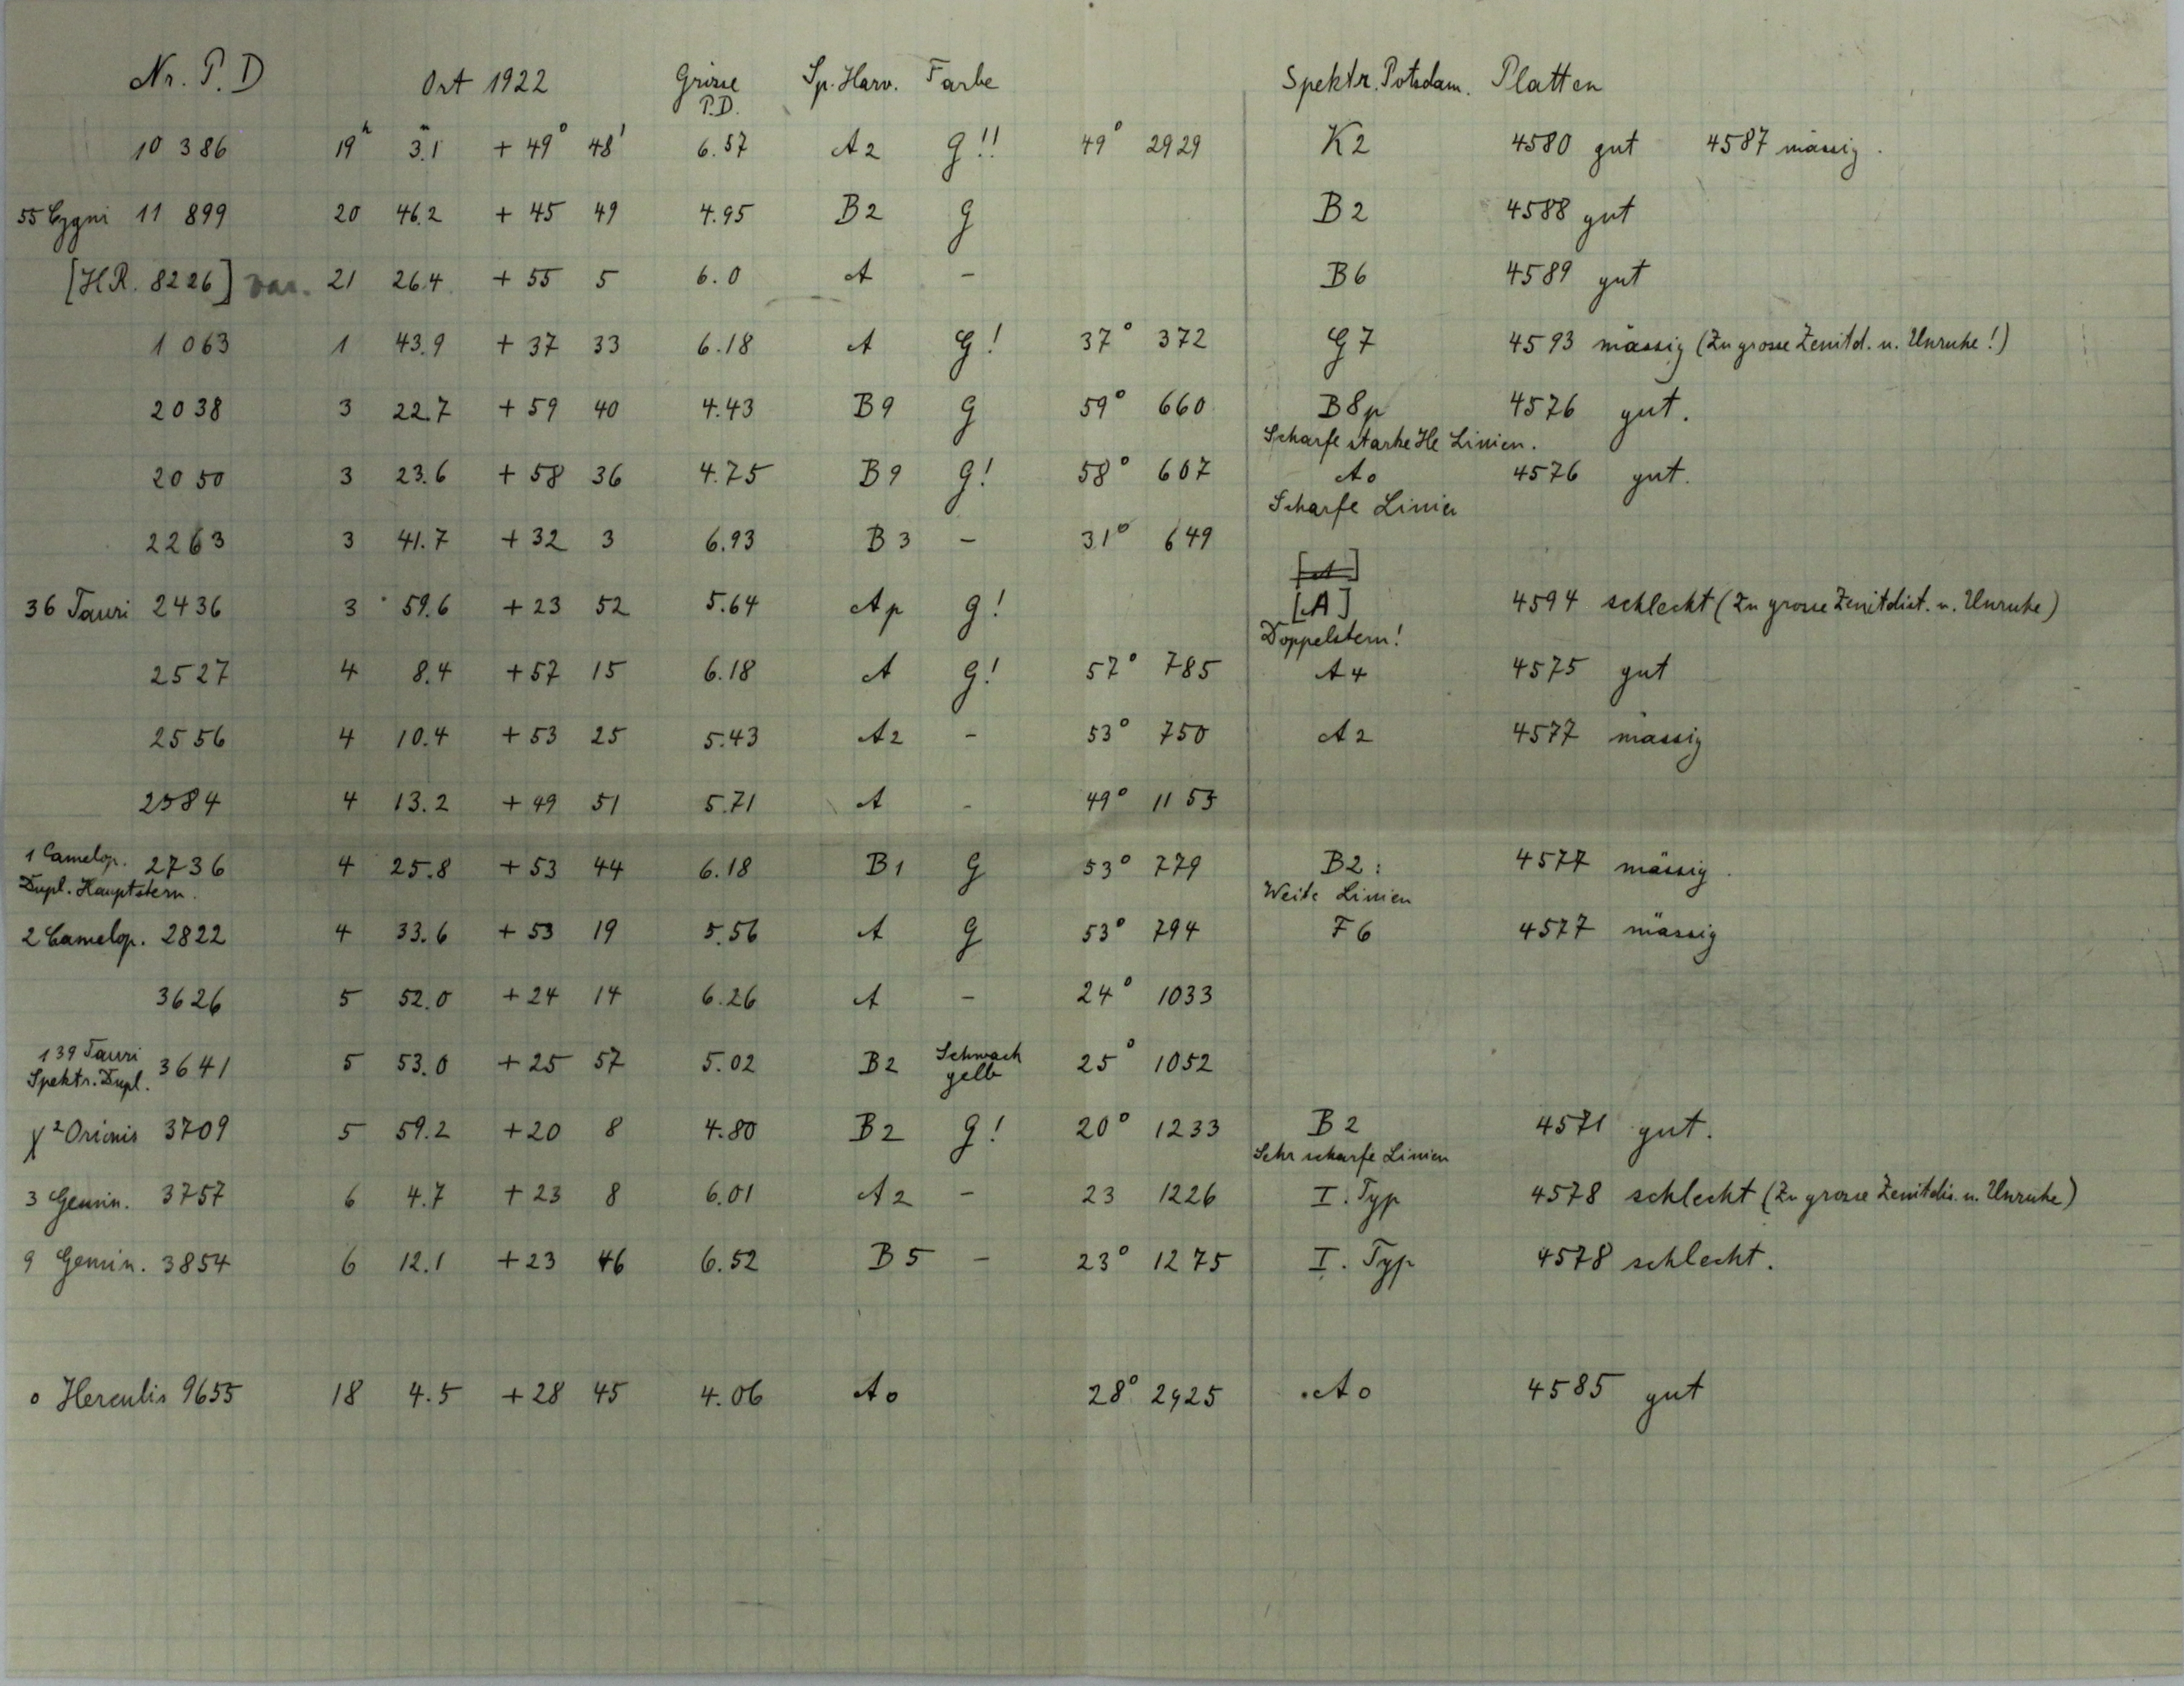 Nr. P. D Ort 1922 Grösse P.D. Sp. Harv. Farbe Spektr. Potsdam. Platten
10 386 19h 3.m1 + 49° 48' 6.57 A2 G!! 49° 2929 K2 4580 gut 4587 mässig.
55 Cygni 11 899 20 46.2 + 45 49 4.95 B2 G B2 4588 gut
[HR. 8226] var. 21 26.4 + 55 5 6.0 A - B6 4589 gut
1 063 1 43.9 + 37 33 6.18 A G! 37° 372 G7 4593 mässig (Zu grosse Zenitd. u. Unruhe!)
2038 3 22.7 + 59 40 4.43 B9 G 59° 660 B8p 4576 gut.
Scharfe starke He Linien.
2050 3 23.6 + 58 36 4.75 B9 G! 58° 607 A0 4576 gut.
Scharfe Linien
2263 3 41.7 + 32 3 6.93 B3 - 31° 649
[A]
36 Tauri 2436 3 59.6 + 23 52 5.64 Ap G! [A] 4594 schlecht (Zu grosse Zenitdist. u. Unruhe)
Doppelstern!
2527 4 8.4 + 57 15 6.18 A G! 57° 785 A4 4575 gut
2556 4 10.4 + 53 25 5.43 A2 - 53° 750 A2 4577 mässig
2584 4 13.2 + 49 51 5.71 A - 49° 1153
1 Camelop. 2736 4 25.8 + 53 44 6.18 B1 G 53° 779 B2: 4577 mässig.
Dupl. Hauptstern. Weite Linien
2 Camelop. 2822 4 33.6 + 53 19 5.56 A G 53° 794 F6 4577 mässig
3626 5 52.0 + 24 14 6.26 A - 24° 1033
139 Tauri Spektr. Dupl. 3641 5 53.0 + 25 57 5.02 B2 Schwach gelb 25° 1052
χ² Orionis 3709 5 59.2 + 20 8 4.80 B2 G! 20° 1233 B2 4571 gut.
Sehr scharfe Linien
3 Gemin. 3757 6 4.7 + 23 8 6.01 A2 - 23 1226 I. Typ 4578 schlecht (Zu grosse Zenitdis. u. Unruhe)
9 Gemin. 3854 6 12.1 + 23 46 6.52 B5 - 23° 1275 I. Typ 4578 schlecht.
o Herculis 9655 18 4.5 + 28 45 4.06 A0 28° 2925 A0 4585 gut